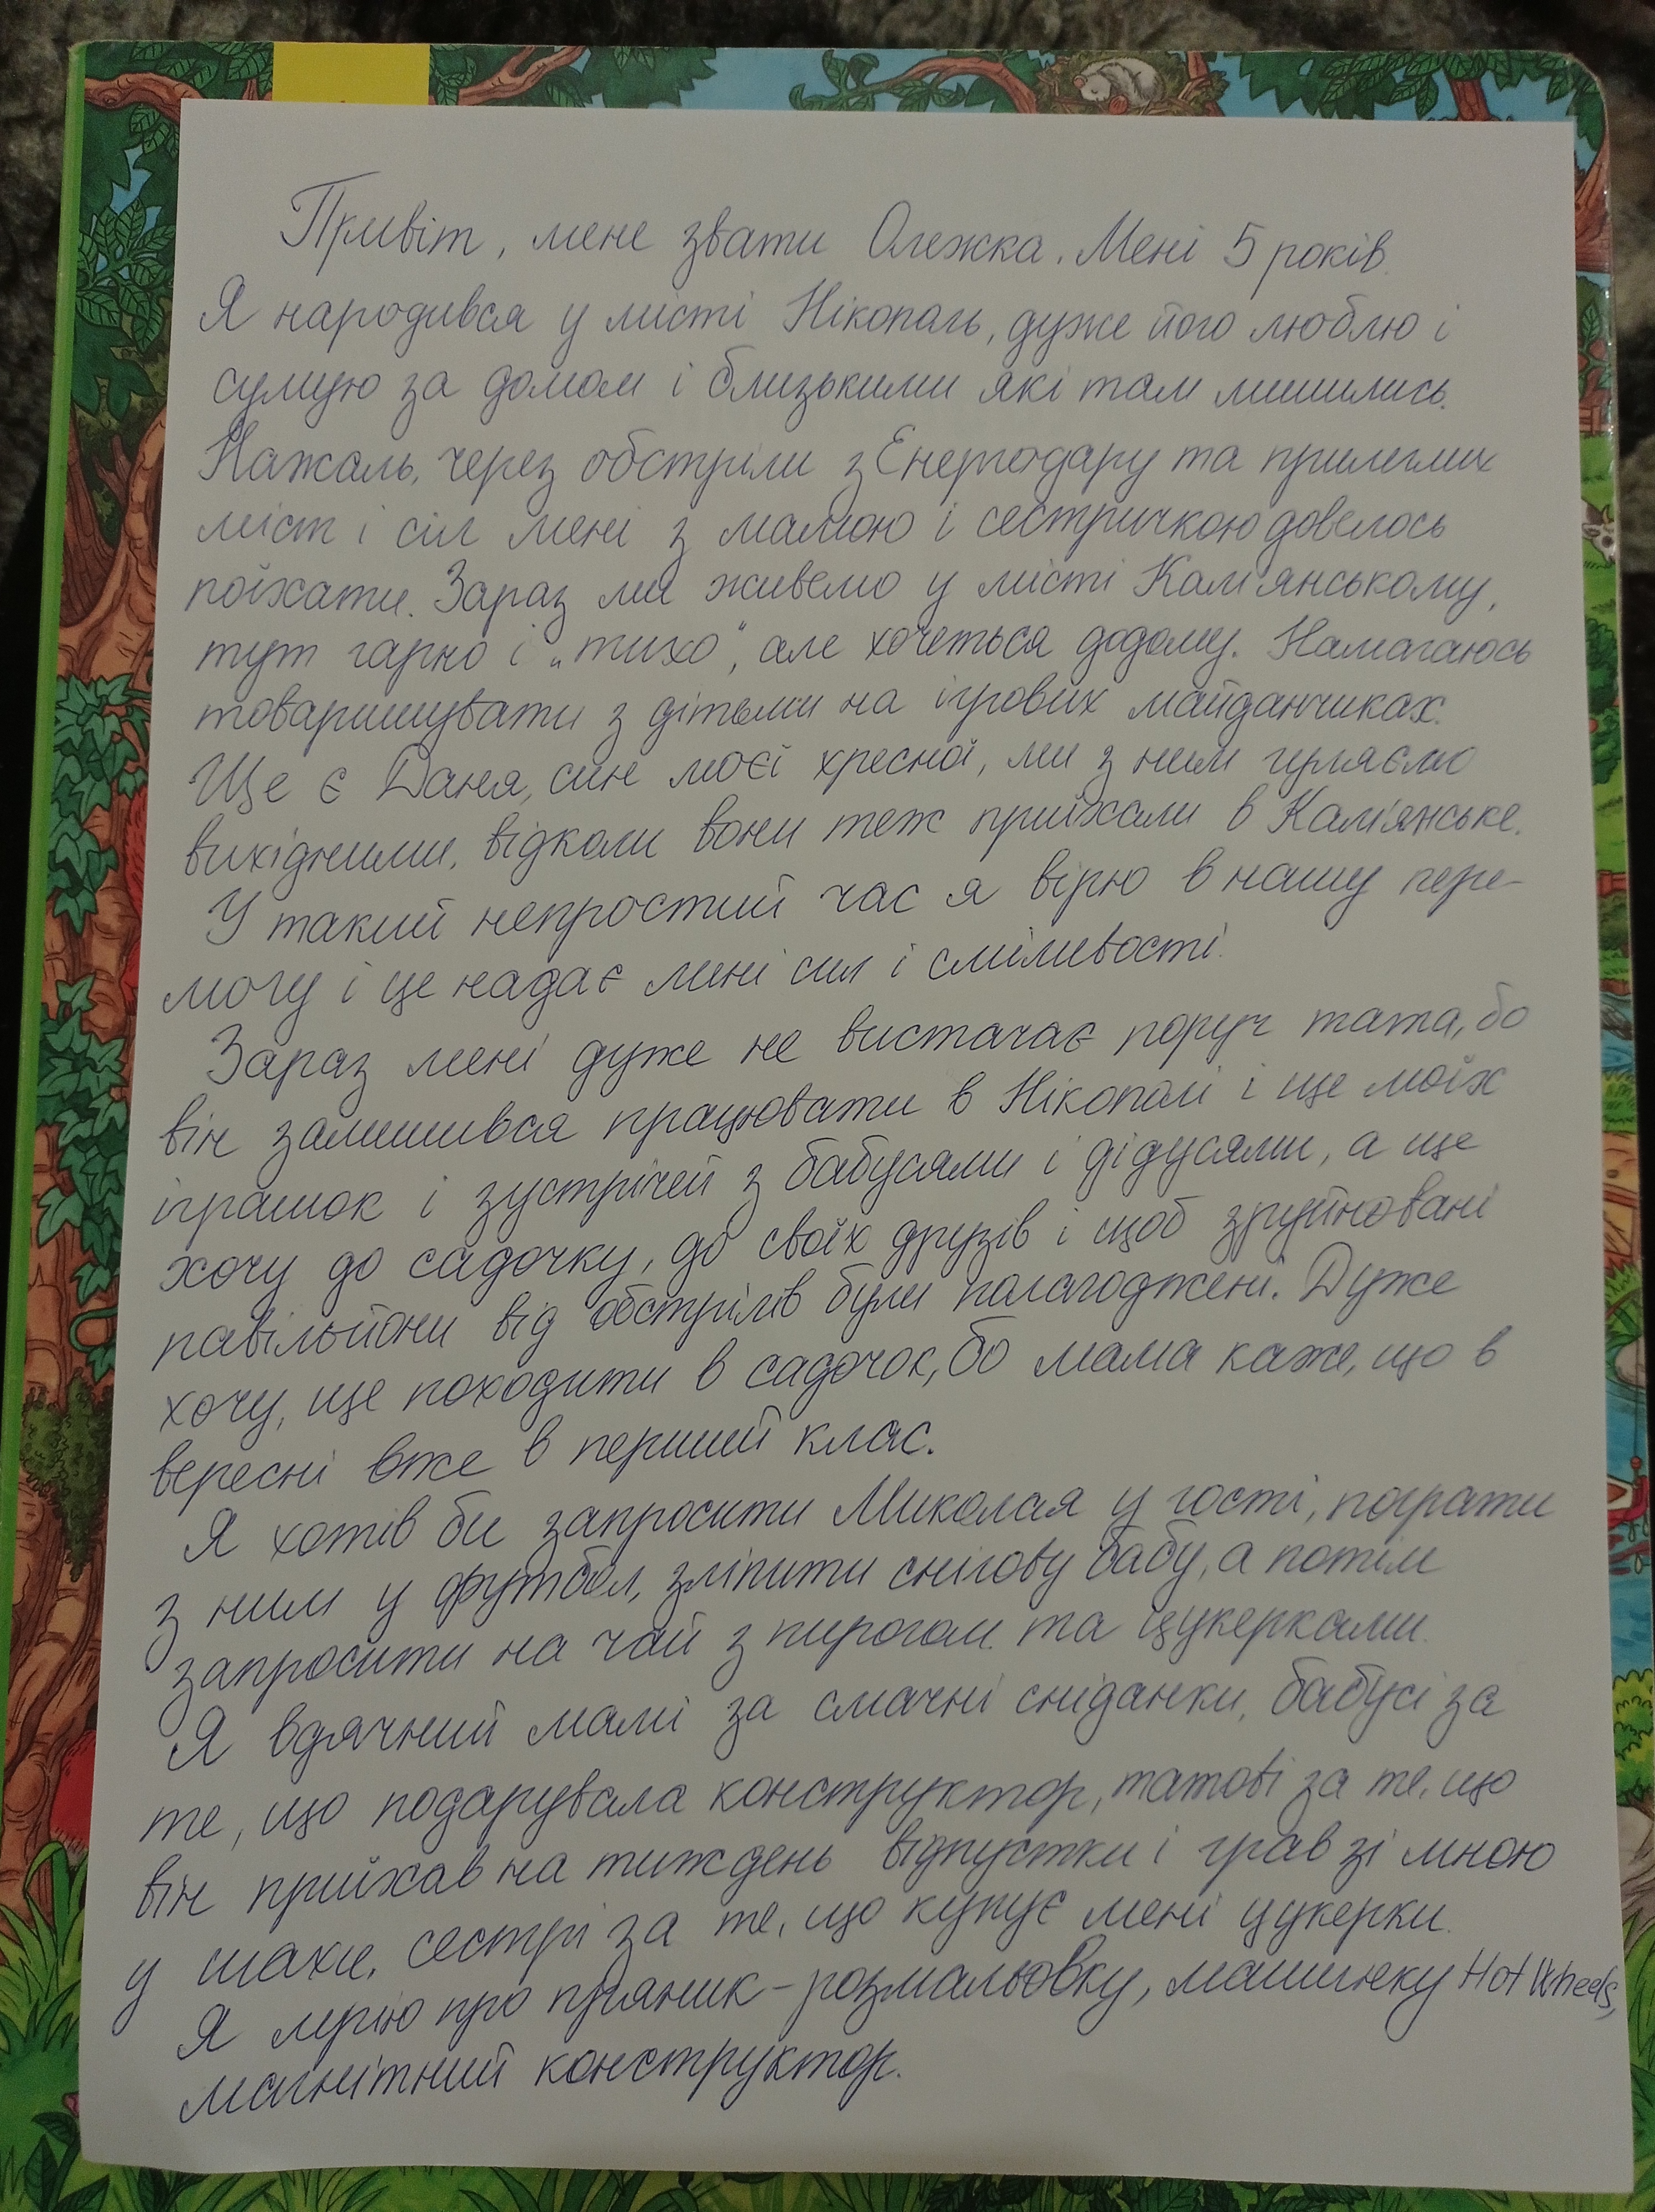 Привіт, мене звати Олежка. Мені 5 років.
Я народився у місті Нікополь, дуже його люблю і
сумую за домом і близькими які там лишились.
Нажаль, через обстріли з Енергодару та прилеглих
міст і сіл мені з мамою і сестричкою довелось
поїхати. Зараз ми живемо у місті Кам'янському,
тут гарно і „тихо", але хочеться додому. Намагаюсь
товаришувати з дітьми на ігрових майданчиках.
Ще є Даня, син моєї хресної, ми з ним гуляємо
вихідними, відколи вони теж приїхали в Кам'янське.
У такий непростий час я вірю в нашу пере-
могу і це надає мені сил і сміливості.
Зараз мені дуже не вистачає поруч тата, бо
він залишився працювати в Нікополі і ще моїх
іграшок і зустрічей з бабусями і дідусями, а ще
хочу до садочку, до своїх друзів і щоб зруйновані
павільйони від обстрілів були полагоджені. Дуже
хочу, ще походити в садочок, бо мама каже, що в
вересні вже в перший клас.
Я хотів би запросити Миколая у гості, пограти
з ним у футбол, зліпити снігову бабу, а потім
запросити на чай з пирогом та цукерками.
Я вдячний мамі за смачні сніданки, бабусі за
те, що подарувала конструктор, татові за те, що
він приїхав на тиждень відпустки і грав зі мною
у шахи, сестрі за те, що купує мені цукерки.
Я мрію про пряник-розмальовку, машинку Hot Wheels,
магнітний конструктор.